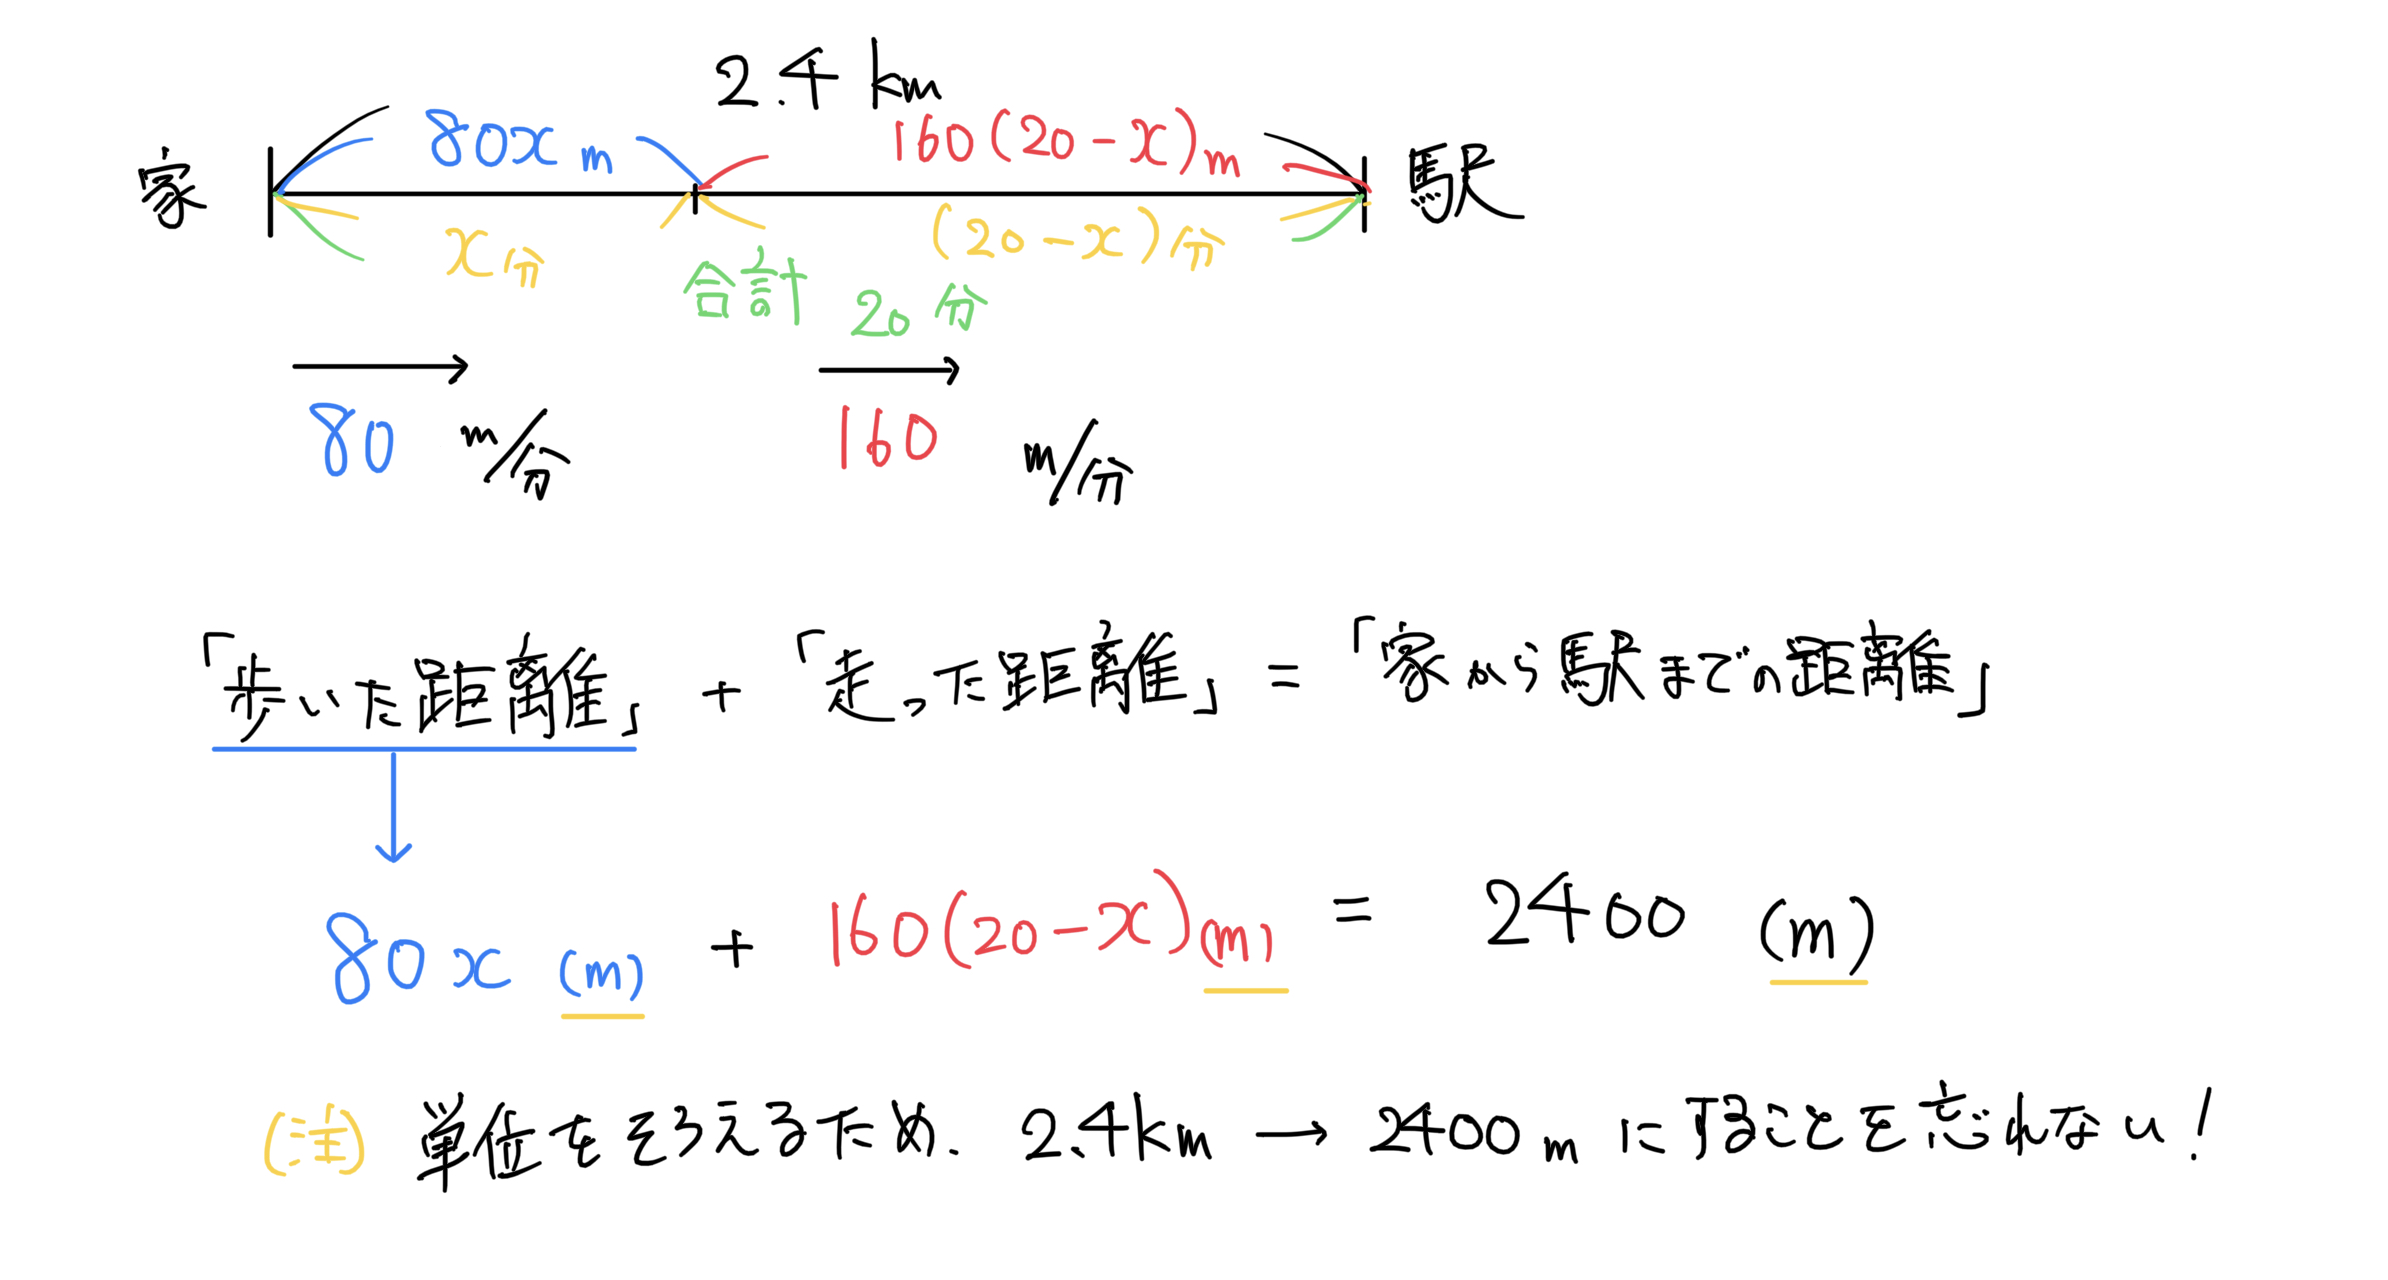 2.4 km
80x m 160(20-x) m
家 駅
x分 (20-x)分
合計 20分
80 m/分 160 m/分
「歩いた距離」 + 「走った距離」 = 「家から駅までの距離」
80x (m) + 160(20-x) (m) = 2400 (m)
(注) 単位をそろえるため、2.4km → 2400m にすることを忘れない!